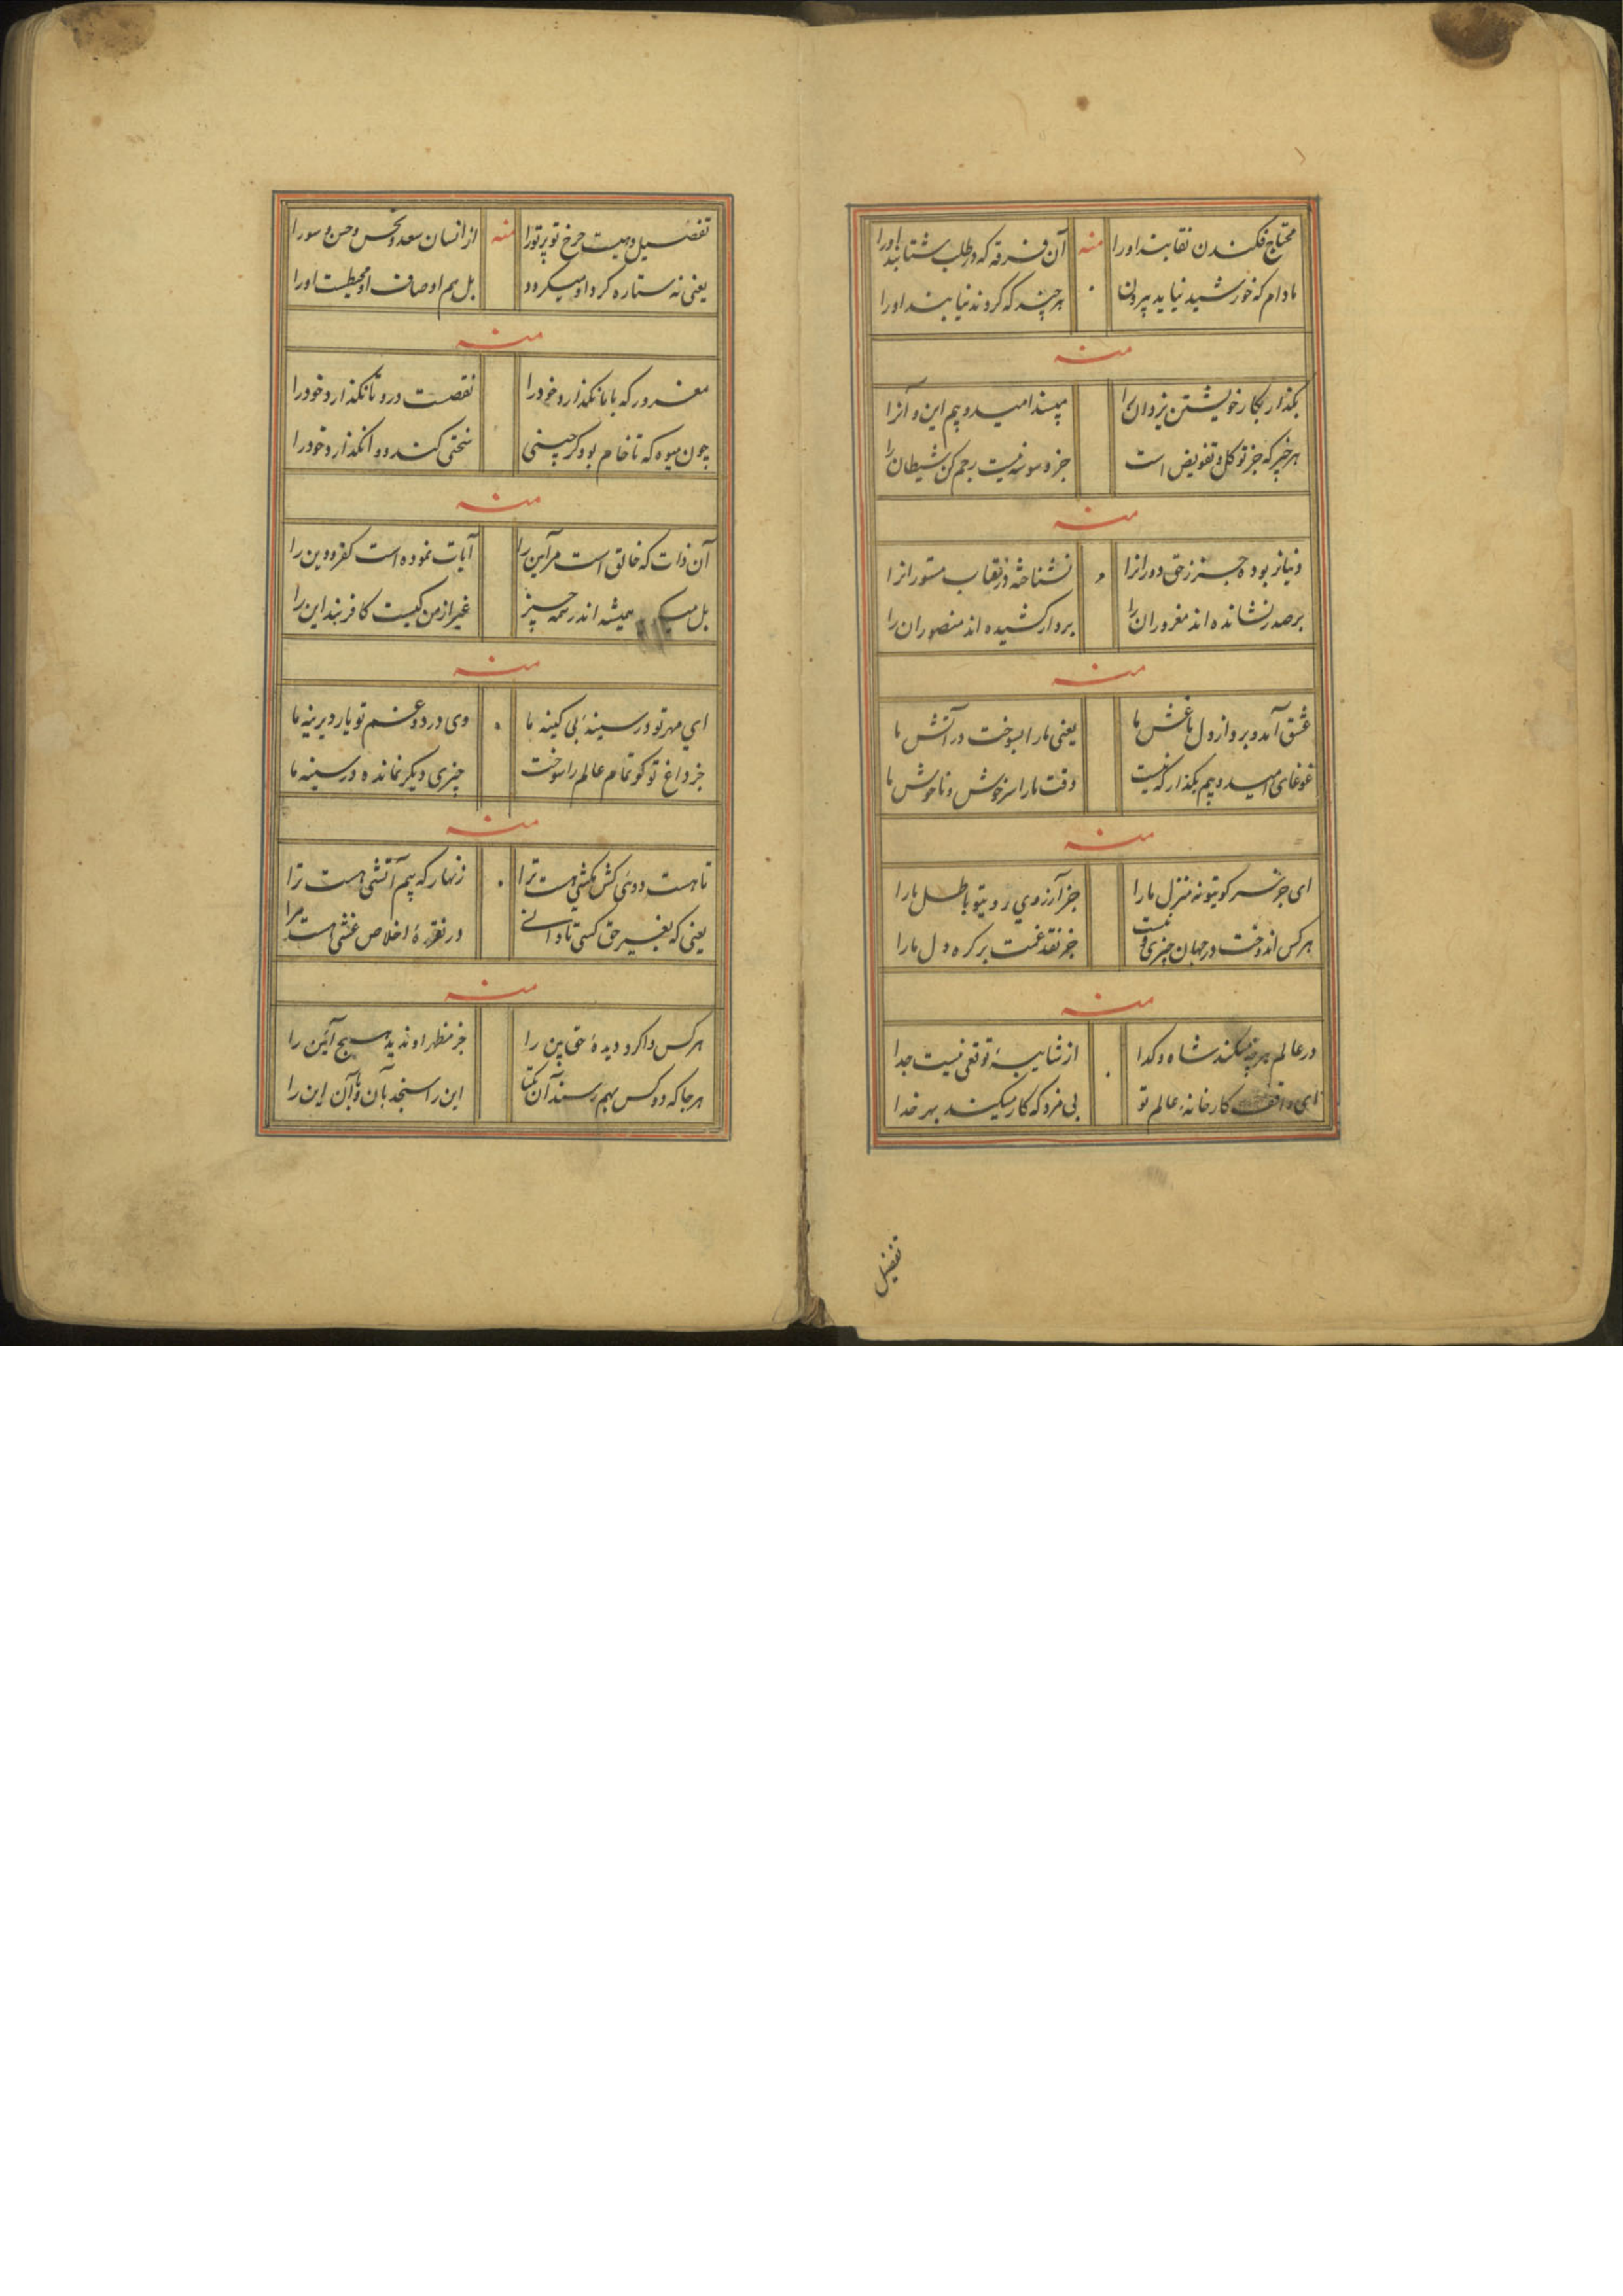 محتاج فکندن نقابند اورا منه آن فرقه که در طلب شتابند اورا
مادام که خورشید نیاید بیرون هرچند که گروند نیابند اورا
منه
بگذار بکار خویشتن یزدان را پسند امید و بیم این و آنرا
هر خیر که جز توکل و تفویض است جز وسوسه نیست رجم کن شیطان را
منه
دنیا بر بوده جز زحق دورانرا نشناخته در نقاب مستورانرا
بر صدر نشانده اند مغروران را بر دار کشیده اند منصوران را
منه
عشق آمد و برد از دل ما غش ما یعنی مارا بسوخت در آتش ما
غوغای امید و بیم بگذار که نیست وقت مارا سر خوش و ناخوش ما
منه
ای جز سر کویتو نه منزل مارا جز آرزوی رویتو باطل مارا
هر کس اندوخت در جهان چیزی و نیست جز نقد غمت بر کره دل مارا
منه
در عالم هرچه میکنند شاه و کدا از شایبهٔ توقعی نیست جدا
ای واقف کارخانهٔ عالم تو بی مزد که کار میکند بهر خدا
تفضیل
تفضیل دهیت چرخ تو بر تورا منه از انسان سعد و نحس و حسن و سورا
یعنی نه ستاره کرد او میکردد بل هم اوصاف او محیطست اورا
منه
مغرور که با ما نکذارد خودرا نقصست درو تا نکذارد خودرا
چون میوه که تا خام بود کر چینی سختی کند و وا نکذارد خودرا
منه
آن ذات که خالق است مر آیین را آیات نموده است کفر و دین را
بل همیشه اندر همه چیز غیر از من کیست کافریند این را
منه
ای مهر تو در سینهٔ بی کینه ما وی درد و غم تو یار دیرینه ما
جز داغ تو کو تمام عالم را سوخت چیزی دیگر نمانده در سینه ما
منه
تا هست دوئی کش مکشی هست ترا زنهار که بیم آتشی هست ترا
یعنی که بغیر حق کسی تا دانی در نقرهٔ اخلاص غشی هست ترا
منه
هر کس وا کرد دیدهٔ حق بین را جز مظهر او ندید هیچ آئین را
هر جا که دو کس بهم رسند آن یکتا این را سنجد بآن و بآن این را